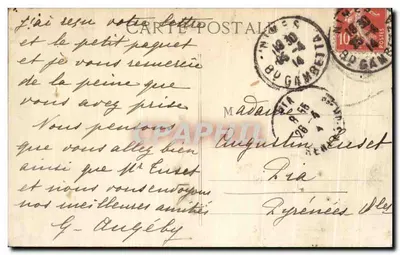 CARTE POSTALE
j'ai reçu votre lettre
et le petit paquet
et je vous remercie
de la peine que
vous avez prise
Nous pensons
que vous allez bien
ainsi que Mr Euset
et nous vous envoyons
nos meilleures amitiés
G. Augéby
NIMES
Bd GAMBETTA
10
Madame
Augustin Euset
Pia
Pyrénées Ales